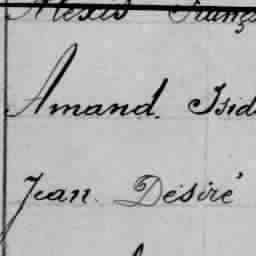 Alexis Franç
Amand. Isid
Jean Désiré